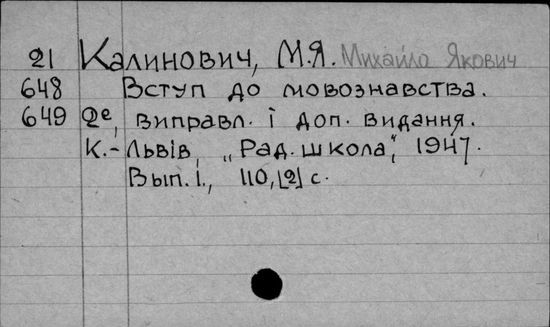 21 Калинович, М.Я. Михайло Якович
648 Вступ до мовознавства.
649 2е, виправл. і доп. видання.
К.-Львів, „Рад. школа", 1947.
Вып. I., 110, [2] с.